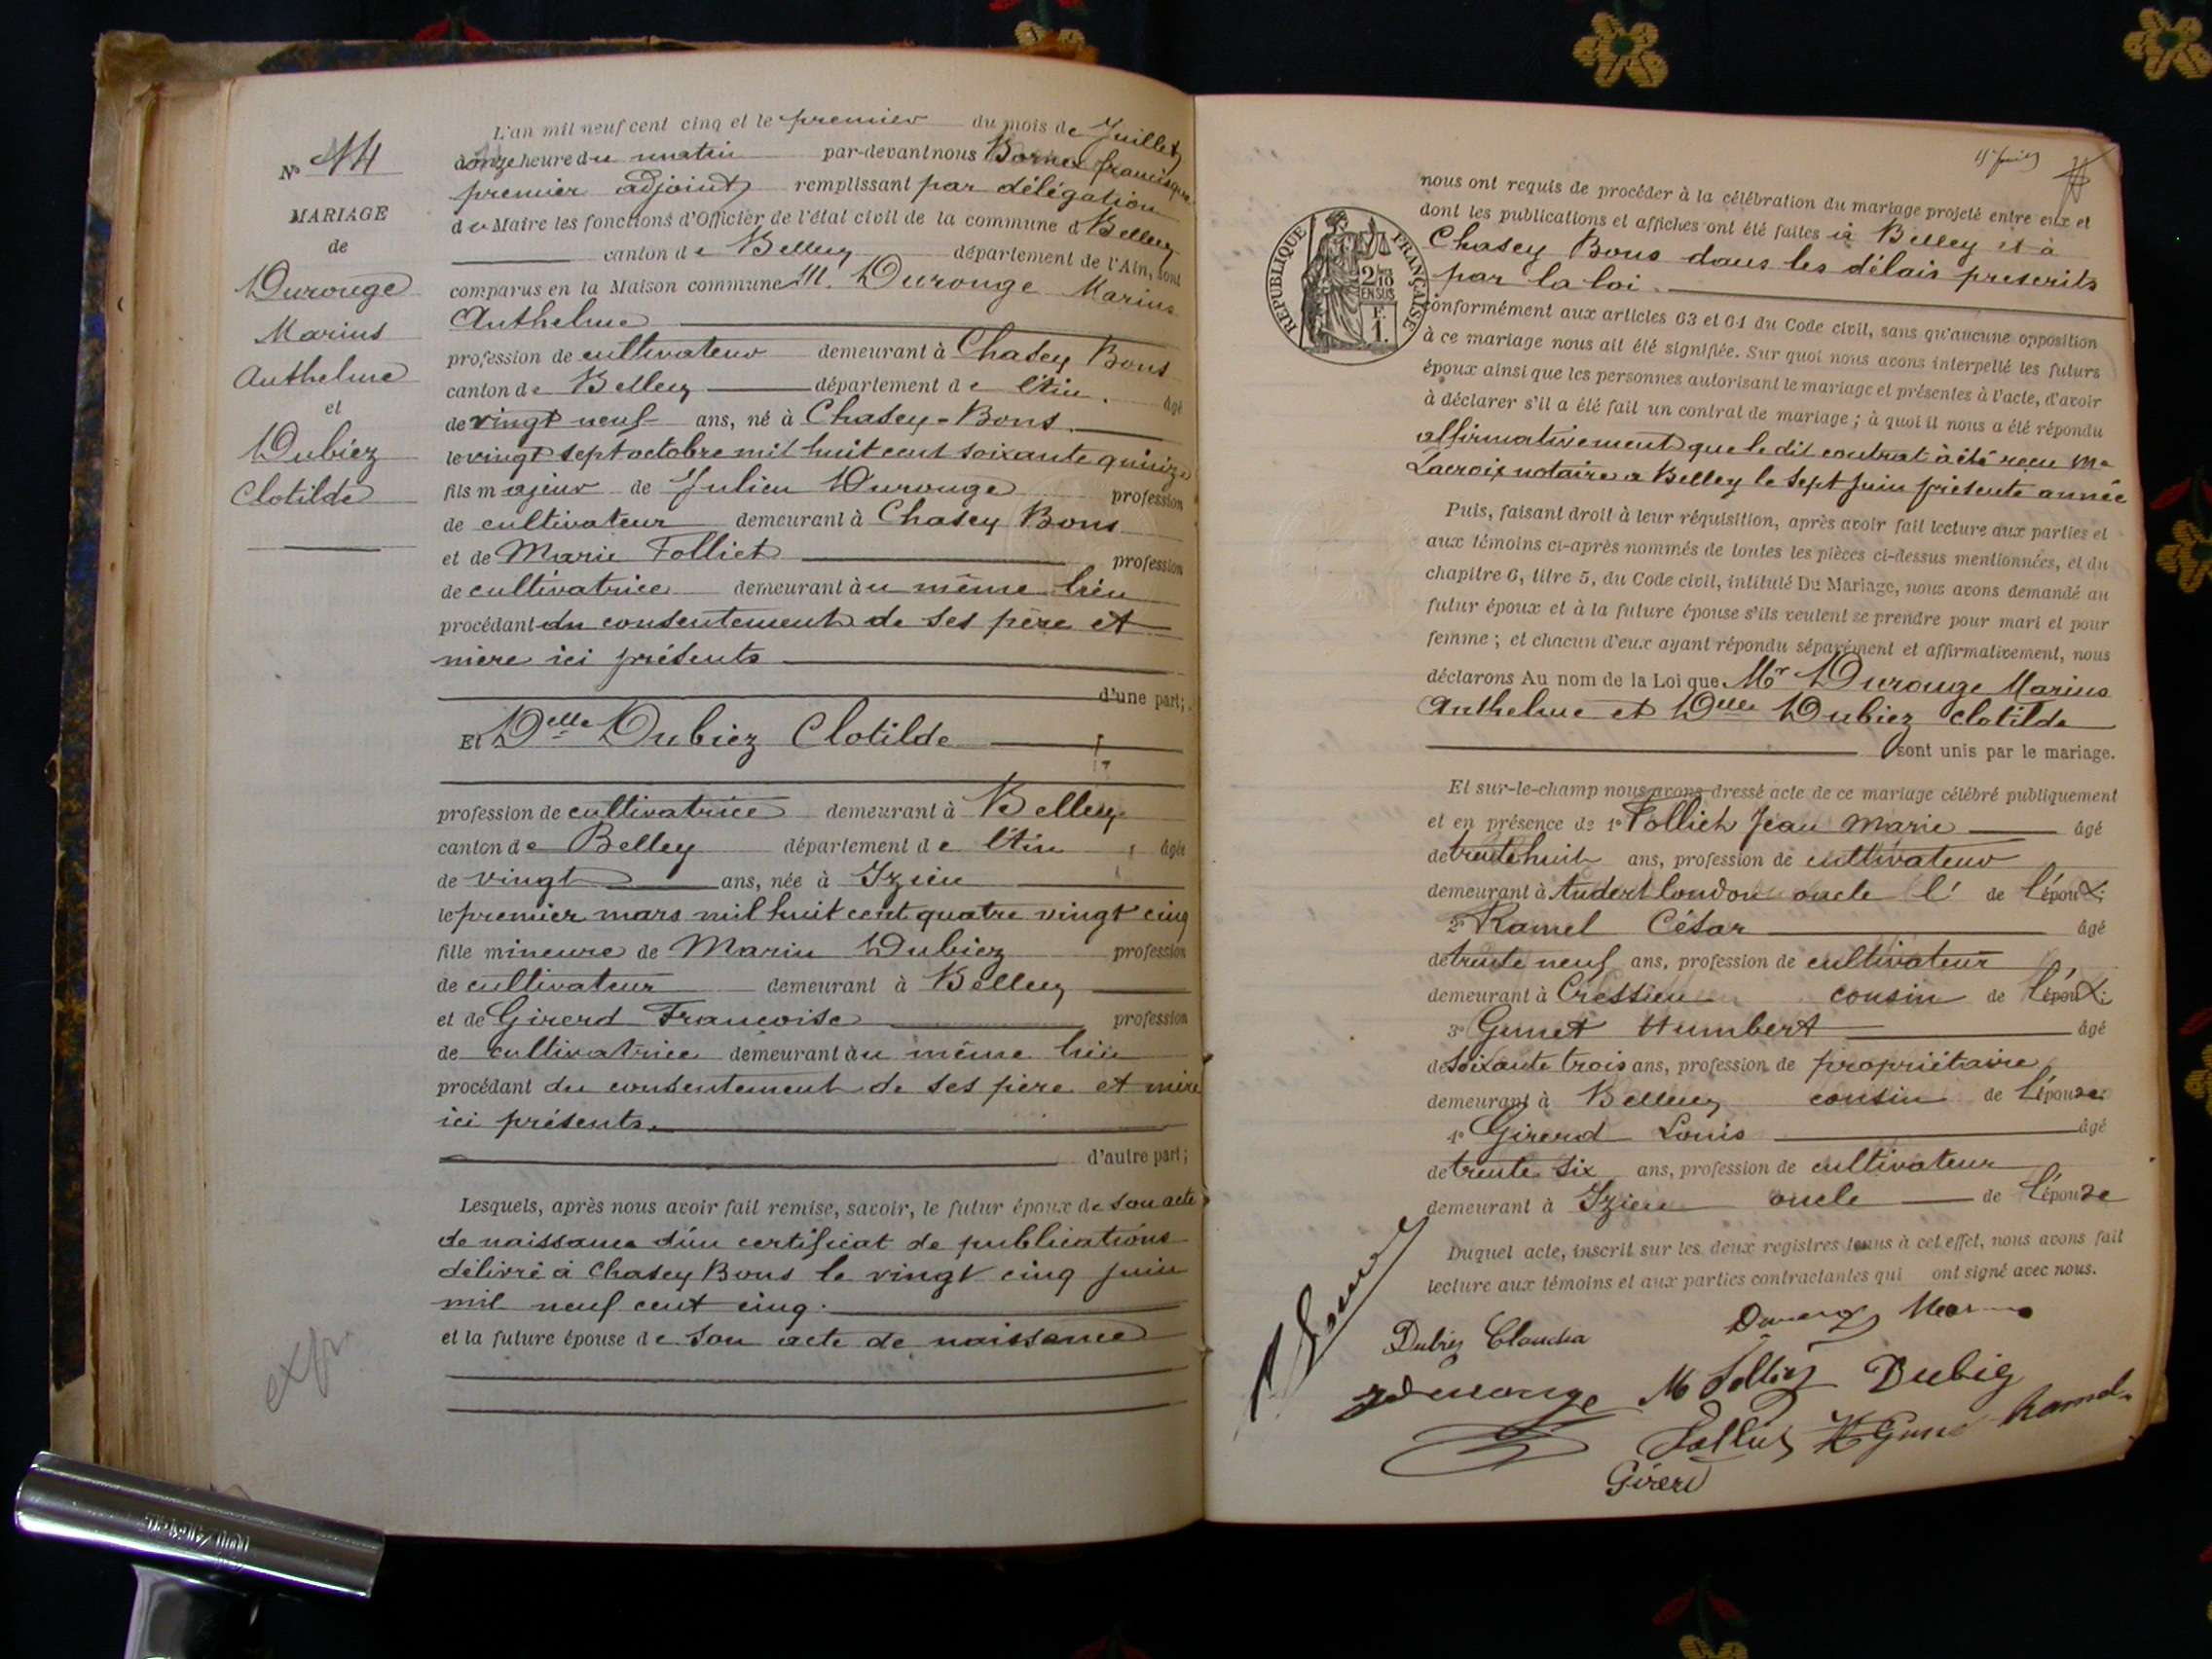 N° 44
MARIAGE
de
Durouge
Marius
Anthelme
et
Dubiez
Clotilde
L'an mil neuf cent cinq et le premier du mois de Juillet
à onze heure du matin par-devant nous Bornex francisque
premier adjoint remplissant par délégation
du Maire les fonctions d'Officier de l'état civil de la commune d Belley
canton de Belley département de l'Ain, sont
comparus en la Maison commune M. Durouge Marius
Anthelme
profession de cultivateur demeurant à Chasey Bons
canton de Belley département de l'Ain. âgé
de vingt neuf ans, né à Chasey-Bons
le vingt sept octobre mil huit cent soixante quinze
fils majeur de Julien Durouge profession
de cultivateur demeurant à Chasey Bons
et de Marie Folliet profession
de cultivatrice demeurant au même lieu
procédant du consentement de ses père et
mère ici présents
d'une part;
Et Delle Dubiez Clotilde
profession de cultivatrice demeurant à Belley
canton de Belley département de l'Ain, âgée
de vingt ans, née à Izieu
le premier mars mil huit cent quatre vingt cinq
fille mineure de Marin Dubiez profession
de cultivateur demeurant à Belley
et de Girerd Françoise profession
de cultivatrice demeurant au même lieu
procédant du consentement de ses père et mère
ici présents.
d'autre part;
Lesquels, après nous avoir fait remise, savoir, le futur époux de son acte
de naissance d'un certificat de publications
délivré à Chasey Bons le vingt cinq juin
mil neuf cent cinq.
et la future épouse de son acte de naissance
exp.
REPUBLIQUE FRANÇAISE
2/10
EN SUS
F.
1.
nous ont requis de procéder à la célébration du mariage projeté entre eux et
dont les publications et affiches ont été faites à Belley et à
Chasey Bons dans les délais prescrits
par la loi.
conformément aux articles 63 et 64 du Code civil, sans qu'aucune opposition
à ce mariage nous ait été signifiée. Sur quoi nous avons interpellé les futurs
époux ainsi que les personnes autorisant le mariage et présentes à l'acte, d'avoir
à déclarer s'il a été fait un contrat de mariage; à quoi il nous a été répondu
affirmativement que le dit contrat à été reçu Me
Lacroix notaire a Belley le sept juin présente année
Puis, faisant droit à leur réquisition, après avoir fait lecture aux parties et
aux témoins ci-après nommés de toutes les pièces ci-dessus mentionnées, et du
chapitre 6, titre 5, du Code civil, intitulé Du Mariage, nous avons demandé au
futur époux et à la future épouse s'ils veulent se prendre pour mari et pour
femme; et chacun d'eux ayant répondu séparément et affirmativement, nous
déclarons Au nom de la Loi que Mr Durouge Marius
Anthelme et Delle Dubiez Clotilde
sont unis par le mariage.
Et sur-le-champ nous avons dressé acte de ce mariage célébré publiquement
et en présence de 1° Folliet Jean Marie âgé
de trente huit ans, profession de cultivateur
demeurant à Andert Condon oncle de l'époux;
2° Ramel César âgé
de trente neuf ans, profession de cultivateur
demeurant à Cressieu cousin de l'époux;
3° Gunet Humbert âgé
de soixante trois ans, profession de propriétaire
demeurant à Belley cousin de l'épouse
4° Girerd Louis âgé
de trente six ans, profession de cultivateur
demeurant à Izieu oncle de l'épouse
Duquel acte, inscrit sur les deux registres tenus à cet effet, nous avons fait
lecture aux témoins et aux parties contractantes qui ont signé avec nous.
Dubiez
Durouge
M Folliet Dubiez
Folliet Ramel
Girerd